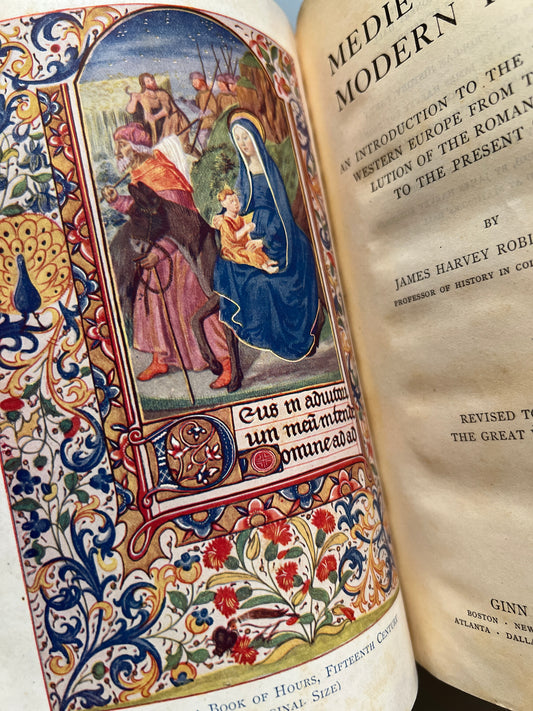 Deus in adiutori
um meum intende
Domine ad ad
Book of Hours, Fifteenth Century
Size)
MEDIE
MODERN T
AN INTRODUCTION TO THE
WESTERN EUROPE FROM T
LUTION OF THE ROMAN
TO THE PRESENT
BY
JAMES HARVEY ROBI
PROFESSOR OF HISTORY IN COL
REVISED TO
THE GREAT
GINN
BOSTON · NEW
ATLANTA · DALLA